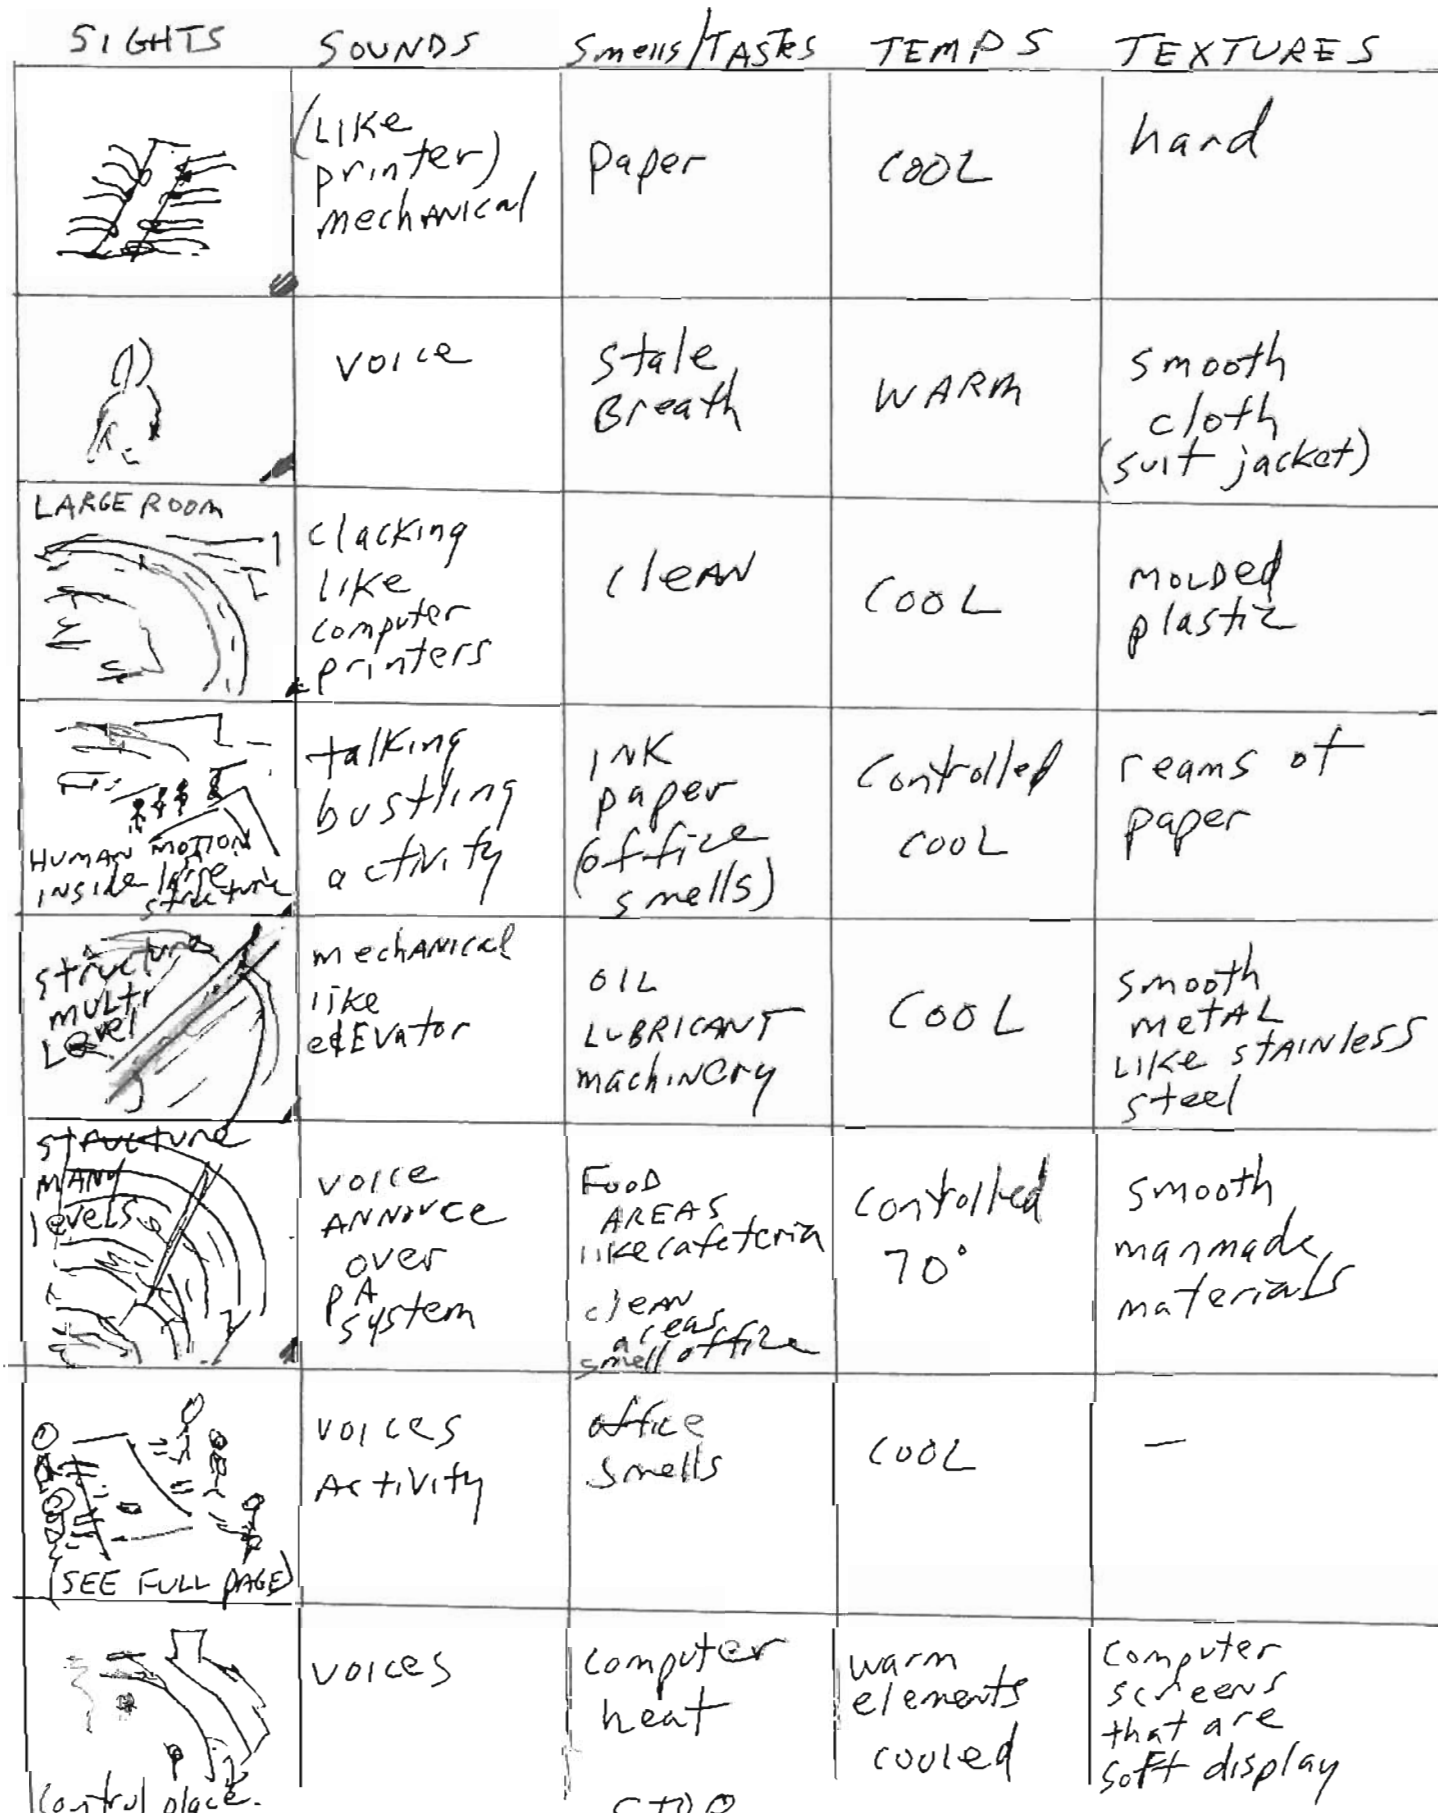 SIGHTS SOUNDS Smells/TASTes TEMPS TEXTURES
(LIKE
printer)
mechanical
paper
COOL
hard
voice
stale
Breath
WARM
smooth
cloth
(suit jacket)
LARGE ROOM
clacking
like
computer
printers
cleAN
COOL
MOLDed
plastic
HUMAN MOTION
INSIDE large
structure
talking
bustling
activity
INK
paper
(office
smells)
Controlled
COOL
reams of
paper
structure
multi
Level
mechanical
like
elEvator
OIL
LUBRICANT
machinery
COOL
smooth
metAL
LIKE stAINless
steel
structure
MANY
levels
voice
ANNOUCE
over
PA
system
FOOD
AREAS
like cafeteria
cleAN
areas
smell office
controlled
70°
smooth
manmade
materials
(SEE FULL PAGE)
voices
Activity
office
smells
COOL
—
Control place.
voices
computer
heat
warm
elements
cooled
computer
screens
that are
soft display
STOP